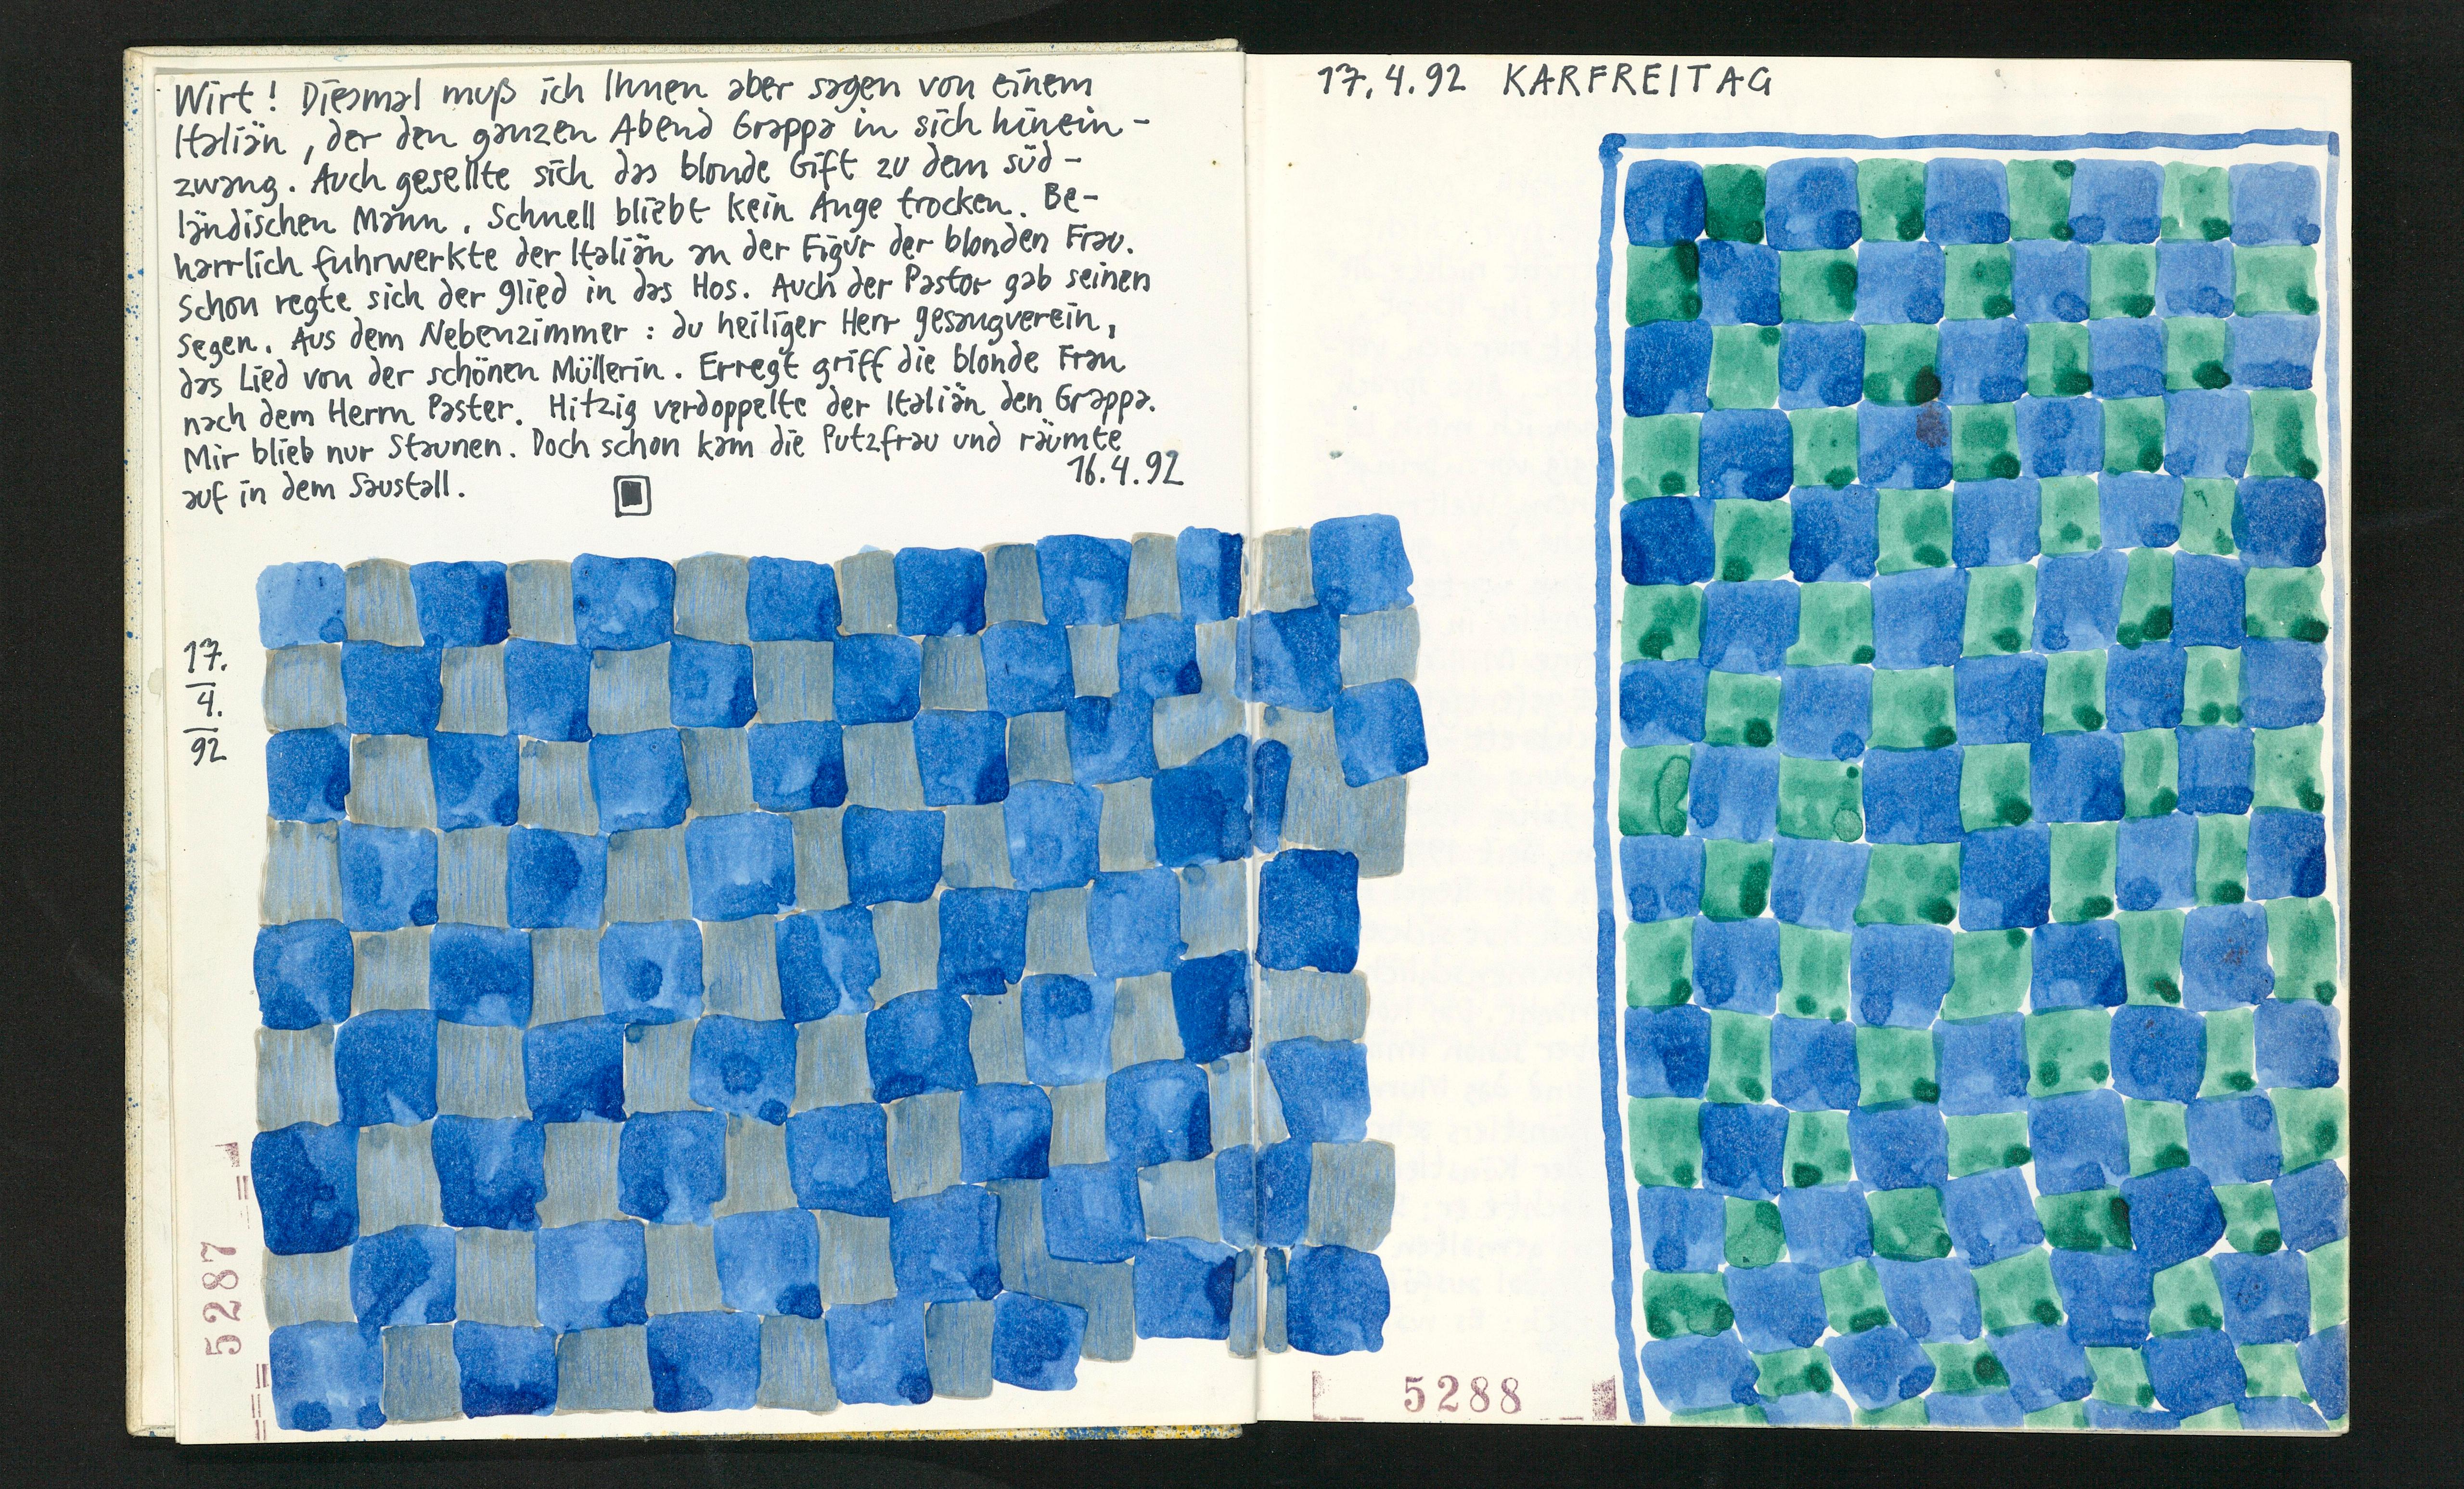 Wirt! Diesmal muß ich Ihnen aber sagen von einem
Italiän, der den ganzen Abend Grappa in sich hinein-
zwang. Auch gesellte sich das blonde Gift zu dem süd-
ländischen Mann. Schnell bliebt kein Auge trocken. Be-
harrlich fuhrwerkte der Italiän an der Figur der blonden Frau.
Schon regte sich der glied in das Hos. Auch der Pastor gab seinen
Segen. Aus dem Nebenzimmer: du heiliger Herr gesangverein,
das Lied von der schönen Müllerin. Erregt griff die blonde Frau
nach dem Herrn Paster. Hitzig verdoppelte der Italiän den Grappa.
Mir blieb nur Staunen. Doch schon kam die Putzfrau und räumte
auf in dem Saustall.
16.4.92
17.
4.
92
5287
17.4.92 KARFREITAG
5288